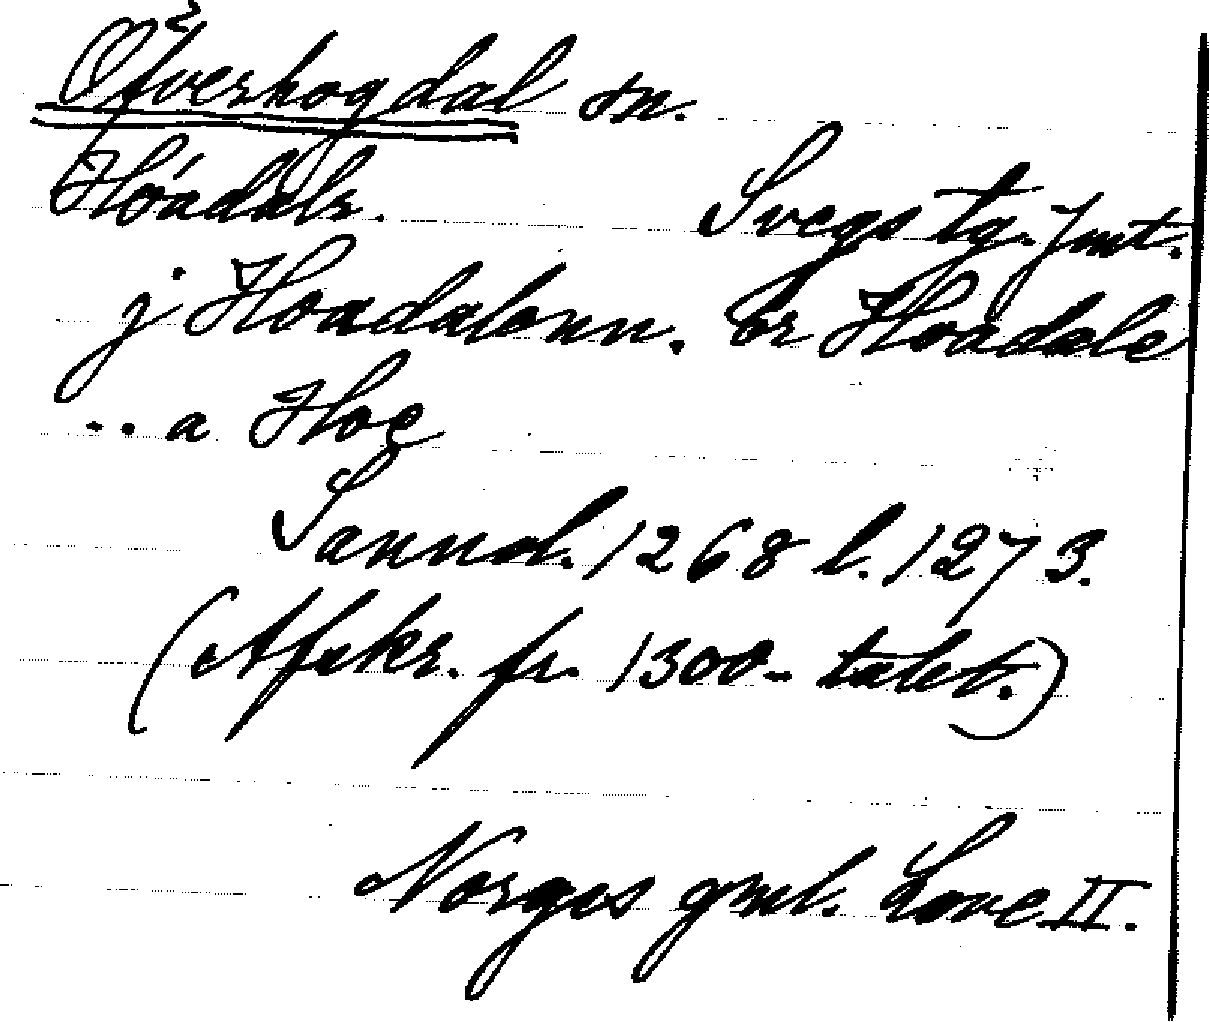 Öfverhogdal sn.
Hóádals. Svegs tg. Jmt.
j Hoadalenn. Ór Hoadale
.. a Hog
Sannol. 1268 l. 1273.
(Afskr. fr. 1300-talet.)
Norges gml. Love II.